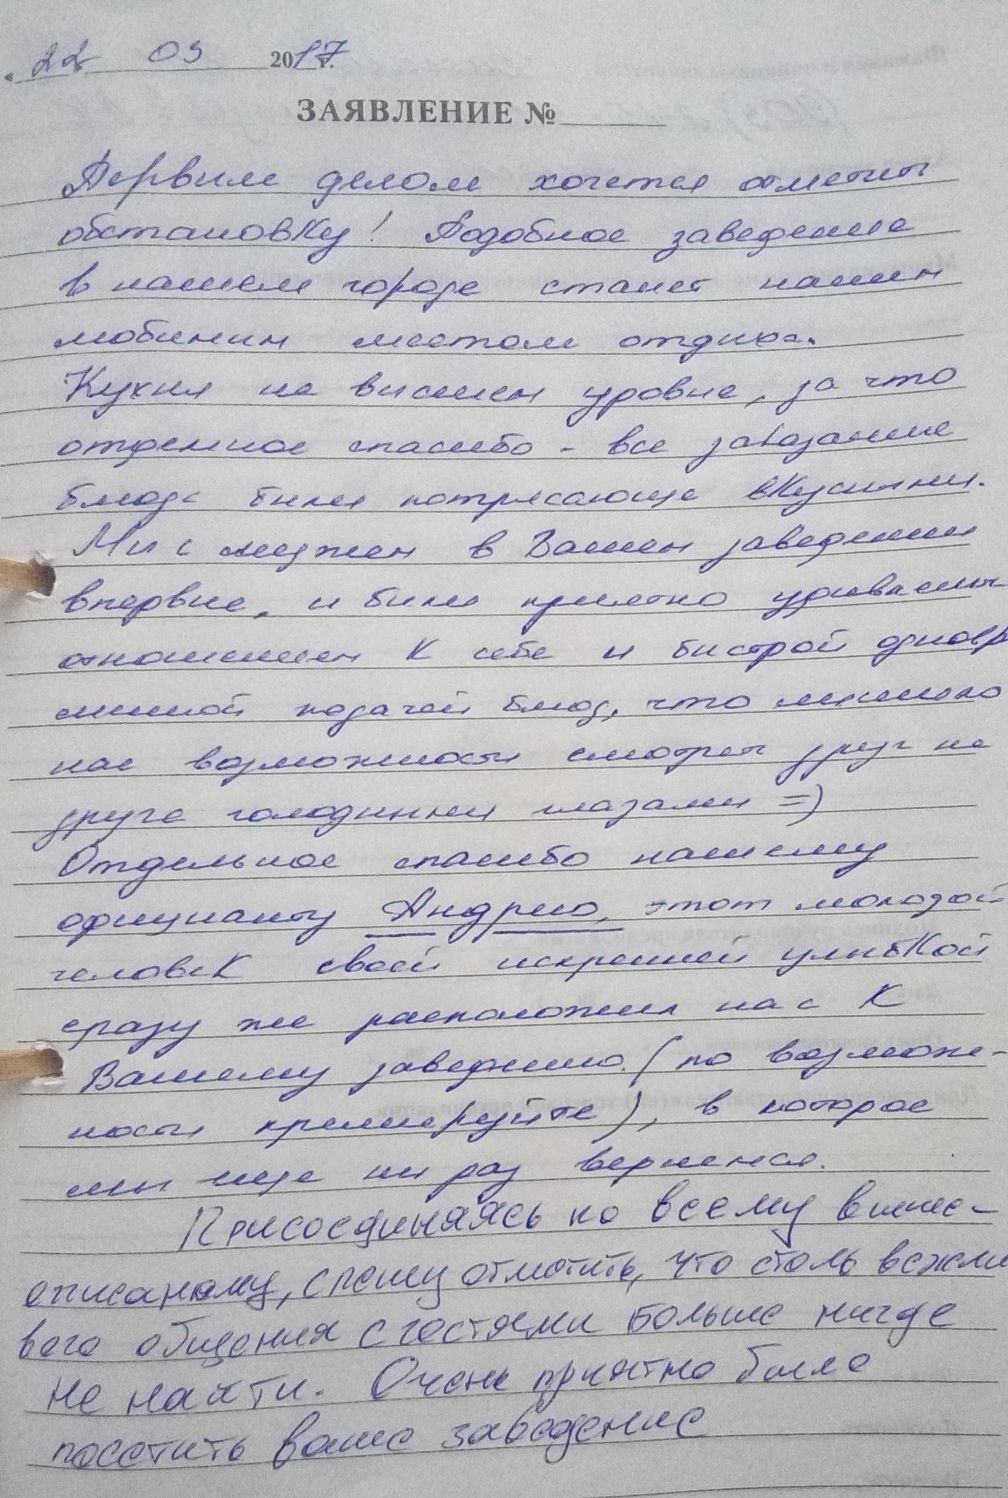 22 03 2017 г.
ЗАЯВЛЕНИЕ №
Первым делом хочется отметить
обстановку! Подобное заведение
в нашем городе станет нашим
любимым местом отдыха.
Кухня на высшем уровне, за что
отдельное спасибо - все заказанные
блюда были потрясающе вкусными.
Мы с мужем в Вашем заведении
впервые, и были приятно удивлены
отношением к себе и быстрой одновр
менной подачей блюд, что лишило
нас возможности смотреть друг на
друга голодными глазами =)
Отдельное спасибо нашему
официанту Андрею, этот молодой
человек своей искренней улыбкой
сразу же расположил нас к
Вашему заведению (по возмож-
ности премируйте), в которое
мы еще ни раз вернемся.
Присоединяясь ко всему выше-
описанному, спешу отметить, что столь вежли
вого общения с гостями больше нигде
не найти. Очень приятно было
посетить ваше заведение